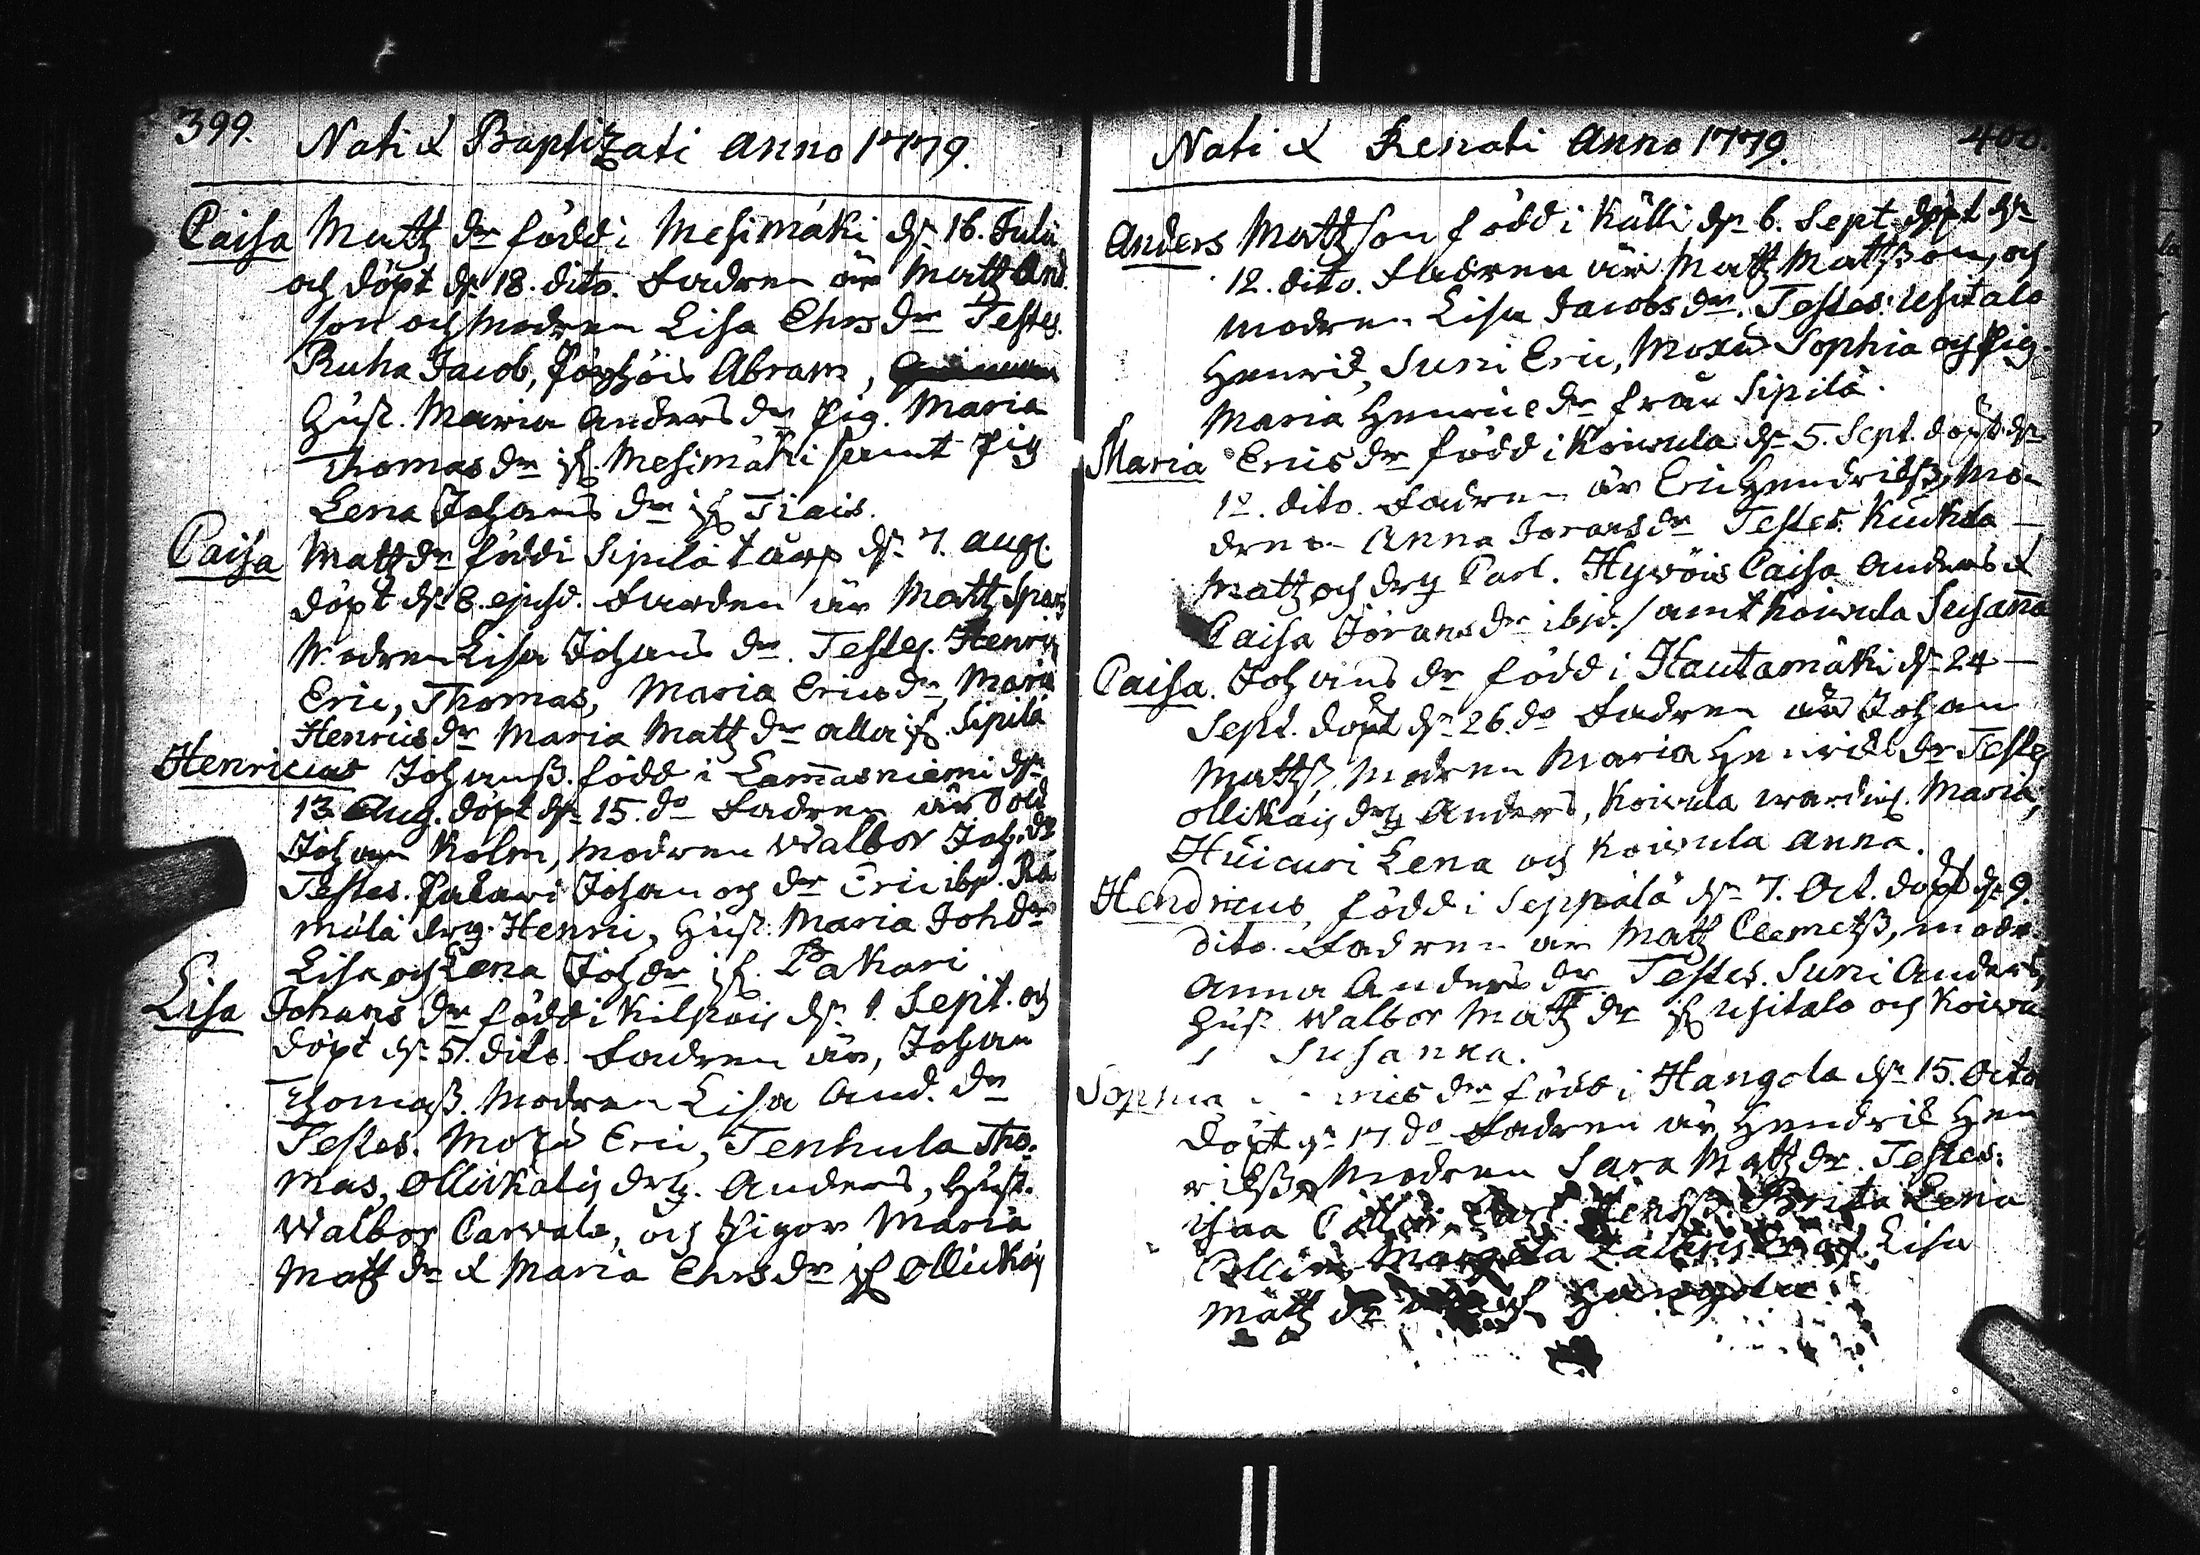 399.
Nati & Baptizati Anno 1779.
Caisa Mattz dr född i Mesimäki dn 16. Julii
och döpt dn 18. dito. Fadren är Mattz And.
son och modren Lisa Chrs dr Testes.
Ruha Jacob, Abram,
Hust. Maria Anders dr Pig. Maria
Thomas dr if. Mesimäki samt Pig
Lena Johans dr if Tiais.
Caisa Mattz dr född i Sipilä torp dn 7. Aug.
döpt dn 8. ejusd. Farden är Mattz
Modren Lisa Johans dr. Testes. Henric
Eric, Thomas, Maria Erics dr, Maria
Henrics dr Maria Mattz dr alla if. Sipilä
Henricus Johanß. född i Lam̄asniemi dn
13. Aug. döpt dn 15. do Fadren är Sold
Johan Holm, modren Walbor Joh. dr
Testes. Johan och dr Eric ibd. Rä
mälä drg. Henric, Hust. Maria Joh dr
Lisa och Lena Joh dr if. Pakari
Lisa Johans dr född i Kilpois dn 1. Sept. och
döpt dn 5. dito. Fadren är, Johan
Thomaß. Modren Lisa And. dr
Testes. Eric, Tenhula Tho-
mas, Ollickais drg. Anders, Hust.
Walbor Carvala, och Pigor Maria
Mattz dr & Maria Chrs dr if Ollickais
Nati & Renati Anno 1779.
400.
Anders Mattzson född i Källi dn 6. Sept. döpt dn
12. dito. Fadren är Mattz Mattßon, och
modren Lisa Jacobs dr. Testes: Usitalo
Henric, Suni Eric, Sophia och Pig.
Maria Henrics dr från Sipilä.
Maria Erics dr född i Koivula dn 5. Sept. döpt dn
12. dito. Fadren är Eric Hendricß, Mo-
dren Anna Jörans dr Testes. Kuckola
Mattz och drg Carl. Hyvöis Caisa Anders &
Caisa Jörans dr ibid. samt Koivula Susan̄a
Caisa. Johans dr född i Hautamäki dn 24
Sept. döpt dn 26. do Fadren är Johan
Mattß, Modren Maria Henrics dr Testes
Ollikais drg Anders, Koivula Maria,
Huicuri Lena och Koivula Anna.
Hendricus, född i Seppälä dn 7. Oct. döpt dn 9.
dito. Fadren är Mattz Clemetß, modr.
Anna Anders dr. Testes. Suni Anders,
Hust. Walbor Mattz dr if Usitalo och Koivu
Susanna.
Sophia dr född i Hangola dn 15. Octo
döpt dn 17 do Fadren är Hendric Hen
ricß, Modren Sara Mattz dr. Testes:
Isaac Brita Lena
Lisa
Mattz dr Hangola